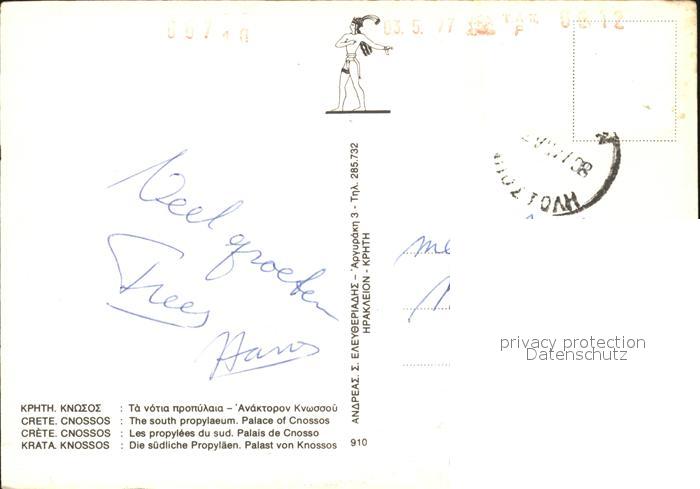 03. 5. 77
0012
Veel
groeten
Trees
Hans
ΚΡΗΤΗ. ΚΝΩΣΟΣ : Τὰ νότια προπύλαια – Ἀνάκτορον Κνωσσοῦ
CRETE. CNOSSOS : The south propylaeum. Palace of Cnossos
CRÈTE. CNOSSOS : Les propylées du sud. Palais de Cnosso
KRATA. KNOSSOS : Die südliche Propyläen. Palast von Knossos
ΑΝΔΡΕΑΣ. Σ. ΕΛΕΥΘΕΡΙΑΔΗΣ – Ἀργυράκη 3 - Τηλ. 285.732
ΗΡΑΚΛΕΙΟΝ - ΚΡΗΤΗ
910
privacy protection
Datenschutz